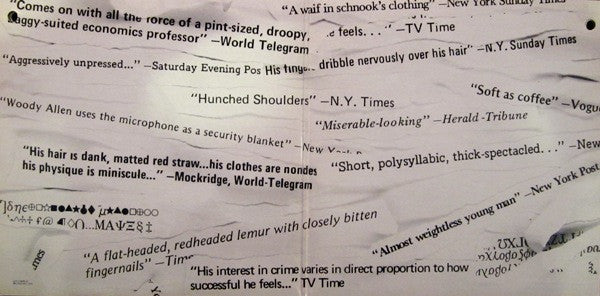 "Comes on with all the force of a pint-sized, droopy,
baggy-suited economics professor" —World Telegram
"A waif in schnook's clothing" —New York Sunday
feels. . ." —TV Time
"Aggressively unpressed..." —Saturday Evening Pos
His
dribble nervously over his hair" —N.Y. Sunday Times
"Hunched Shoulders" —N.Y. Times
"Soft as coffee" —Vogu
"Woody Allen uses the microphone as a security blanket" —New
"Miserable-looking" —Herald-Tribune
"His hair is dank, matted red straw...his clothes are nondes
his physique is miniscule..." —Mockridge, World-Telegram
"Short, polysyllabic, thick-spectacled. . ." —New
"Almost weightless young man" —New York Post
"A flat-headed, redheaded lemur with closely bitten
fingernails" —Time
"His interest in crime varies in direct proportion to how
successful he feels..." TV Time